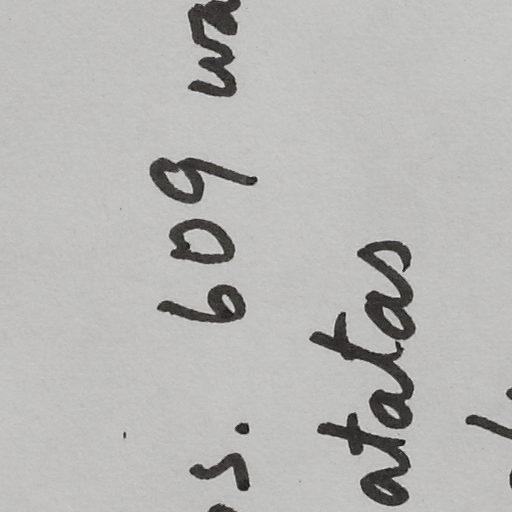 s. 609 wa
atatas